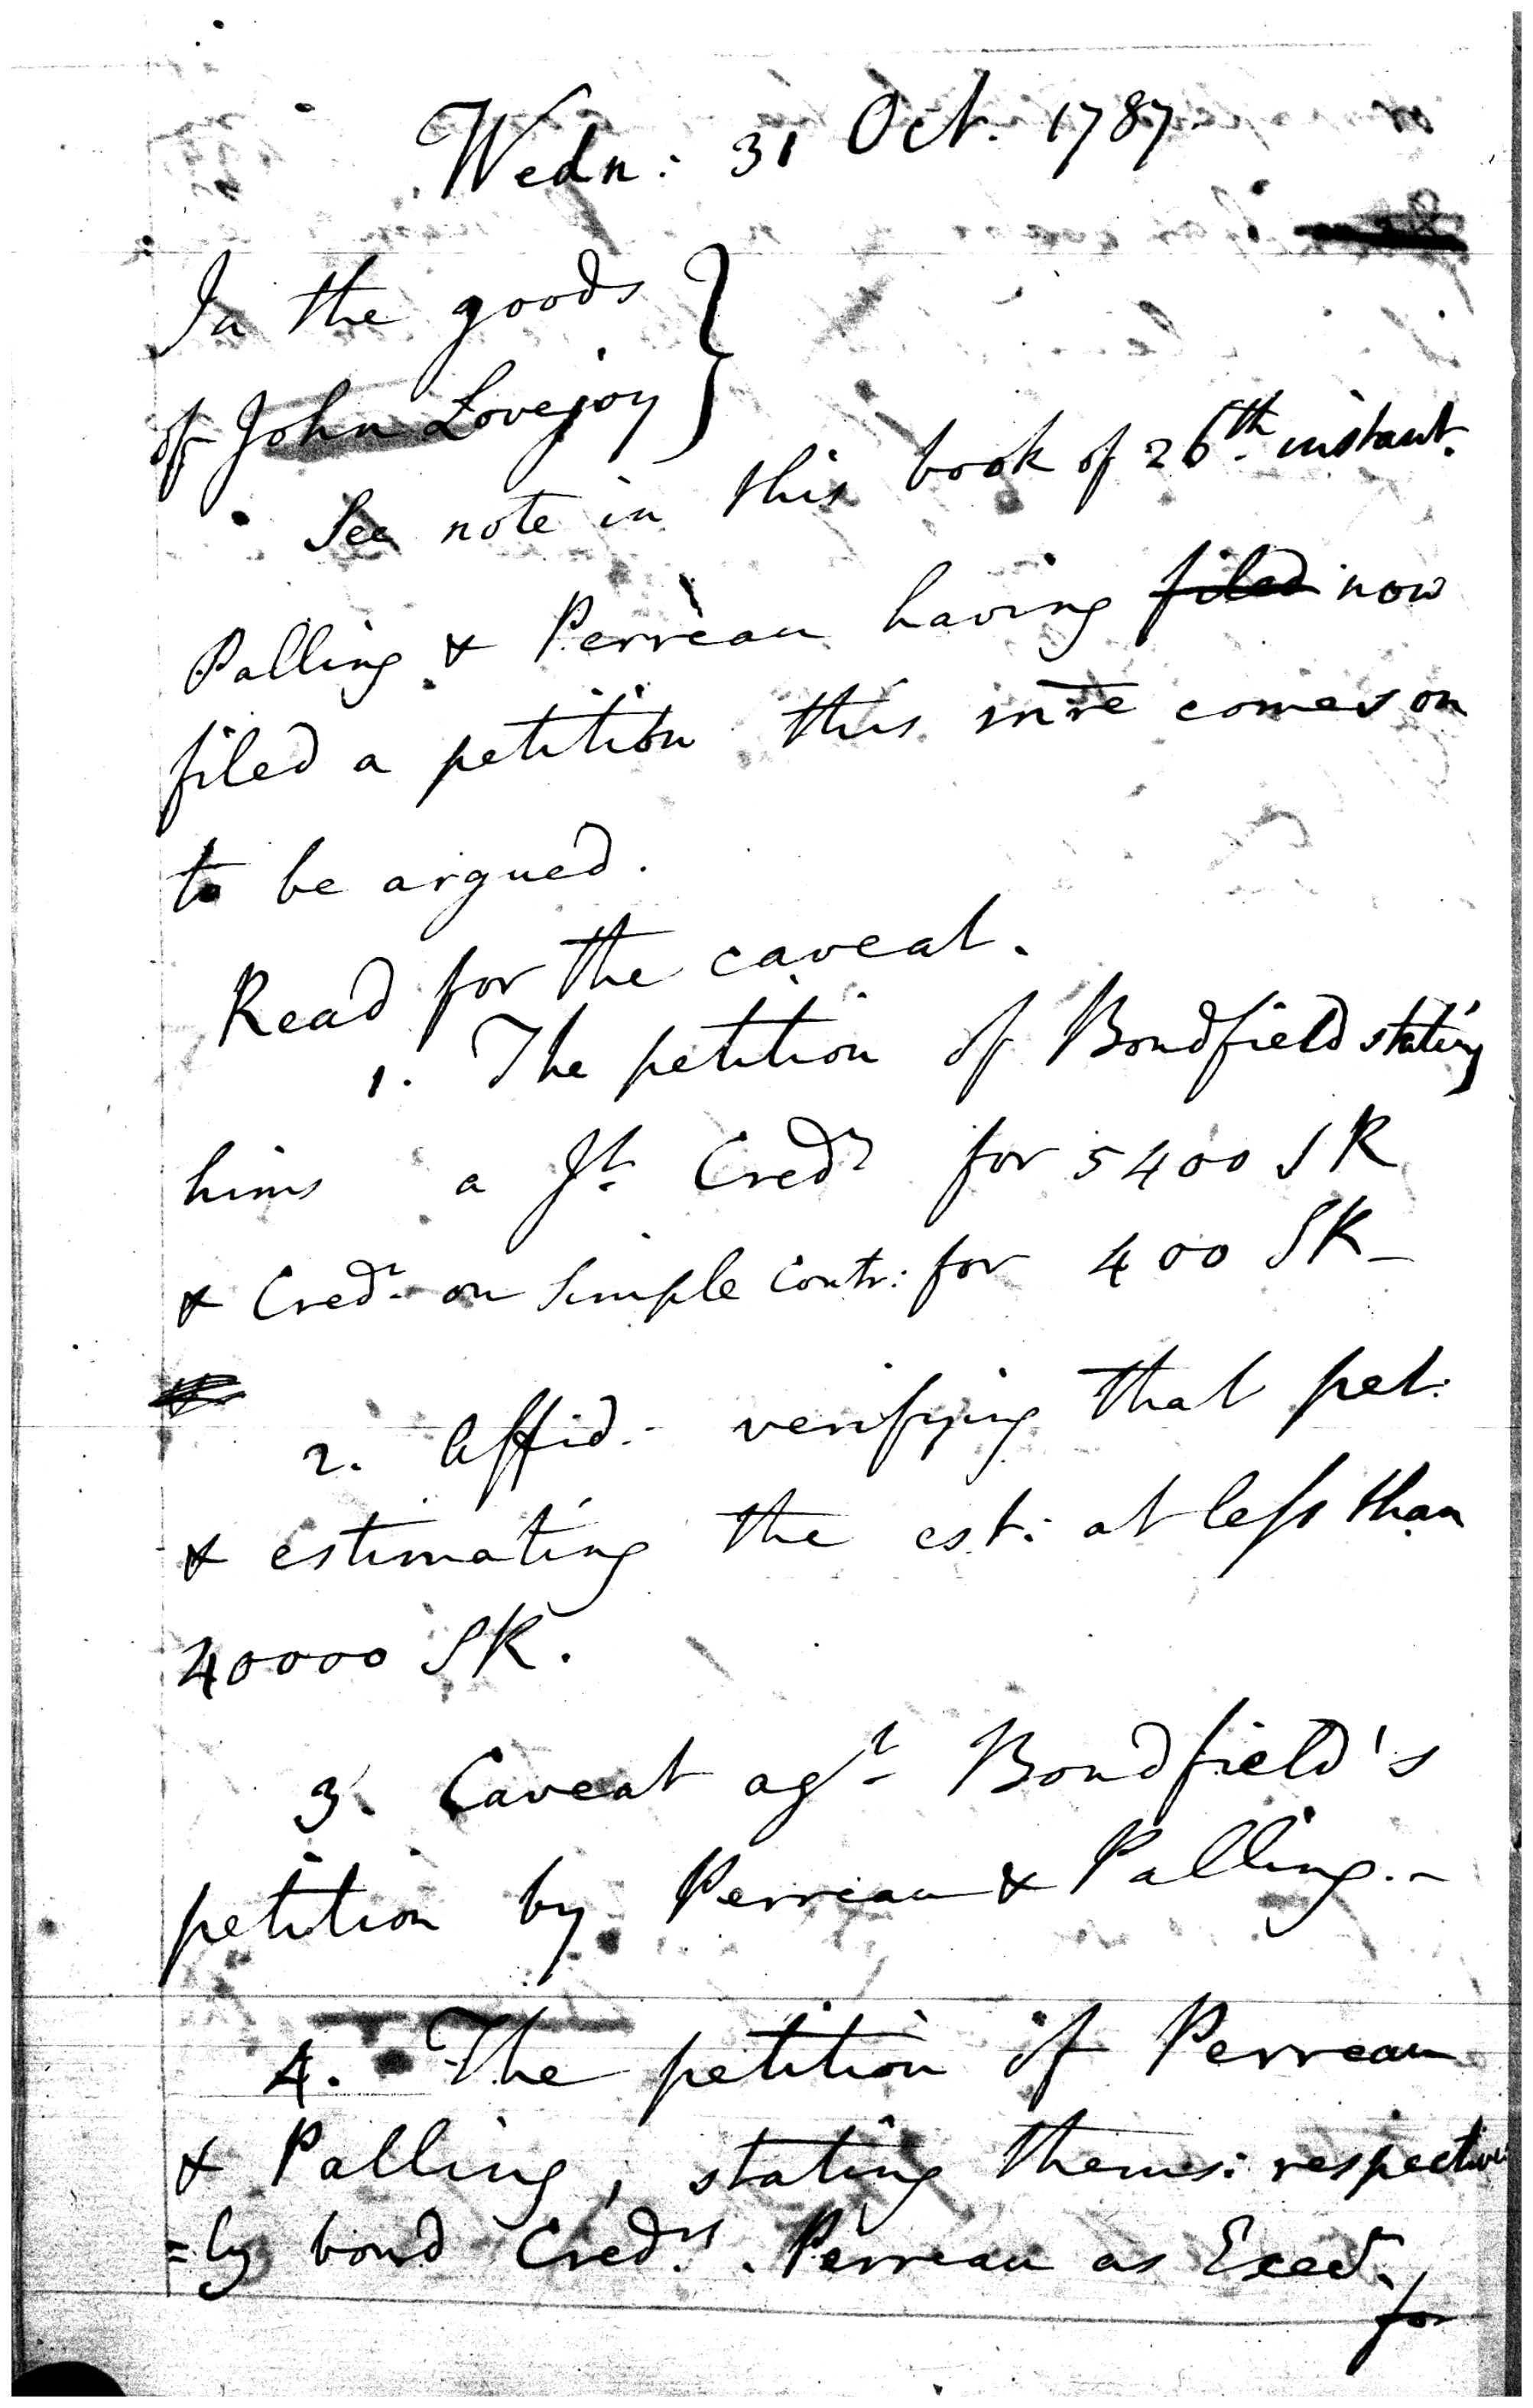 Wedn: 31 Oct. 1787.
In the goods }
of John Lovejoy }
See note in this book of 26th instant.
Palling & Perreau having filed now
filed a petition this mre comes on
to be argued.
Read for the caveat.
1. The petition of Bondfield stating
hims a Jt. Credr for 5400 SR
& Credr on Simple Contr: for 400 SR -
2. Affid. verifying that pet:
& estimating the est: at less than
40000 SR.
3. Caveat agt Bondfield's
petition by Perreau & Palling. -
4. The petition of Perreau
& Palling, stating thems: respective
=ly bond Credrs. Perreau as Execr.
for